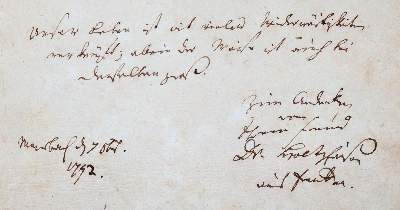 Unser Leben ist mit vielen Widerwärtigkeiten
verknüpft; allein der Weise ist auch bei
denselben groß.
Zum Andenken
von
Ihrem Freund
Dr.
aus
d 7 Obr.
1792.